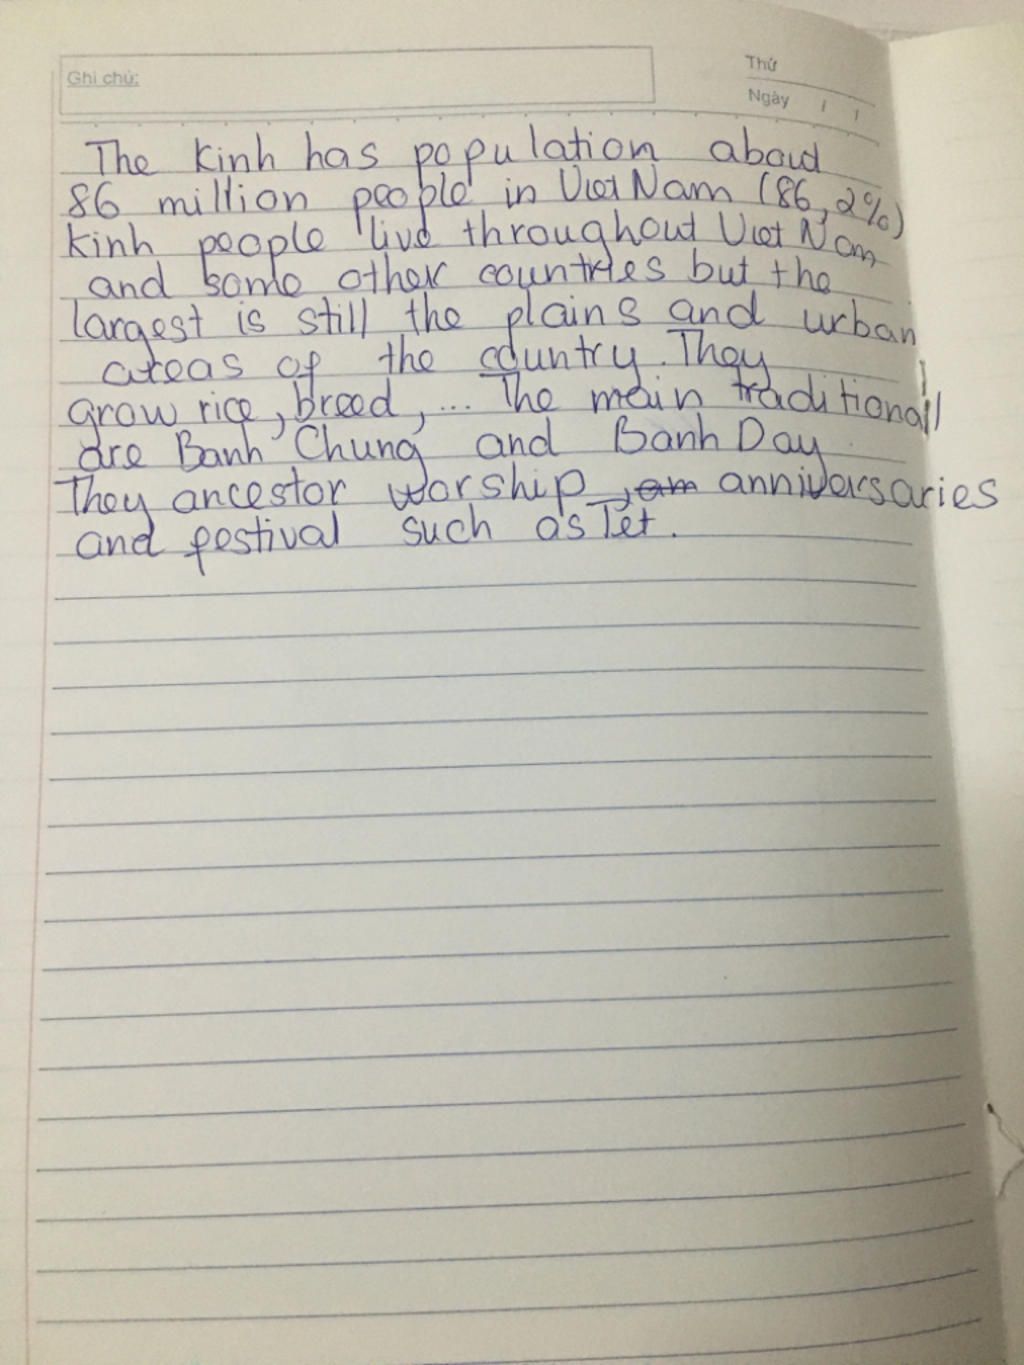 Ghi chú:
Thứ
Ngày / /
The Kinh has population about
86 million people in Viet Nam (86,2%)
Kinh people live throughout Viet Nam
and some other countries but the
largest is still the plains and urban
areas of the country. They
grow rice, breed, ... The main traditional
are Banh Chung and Banh Day.
They ancestor worship, am anniversaries
and festival such as Tet.